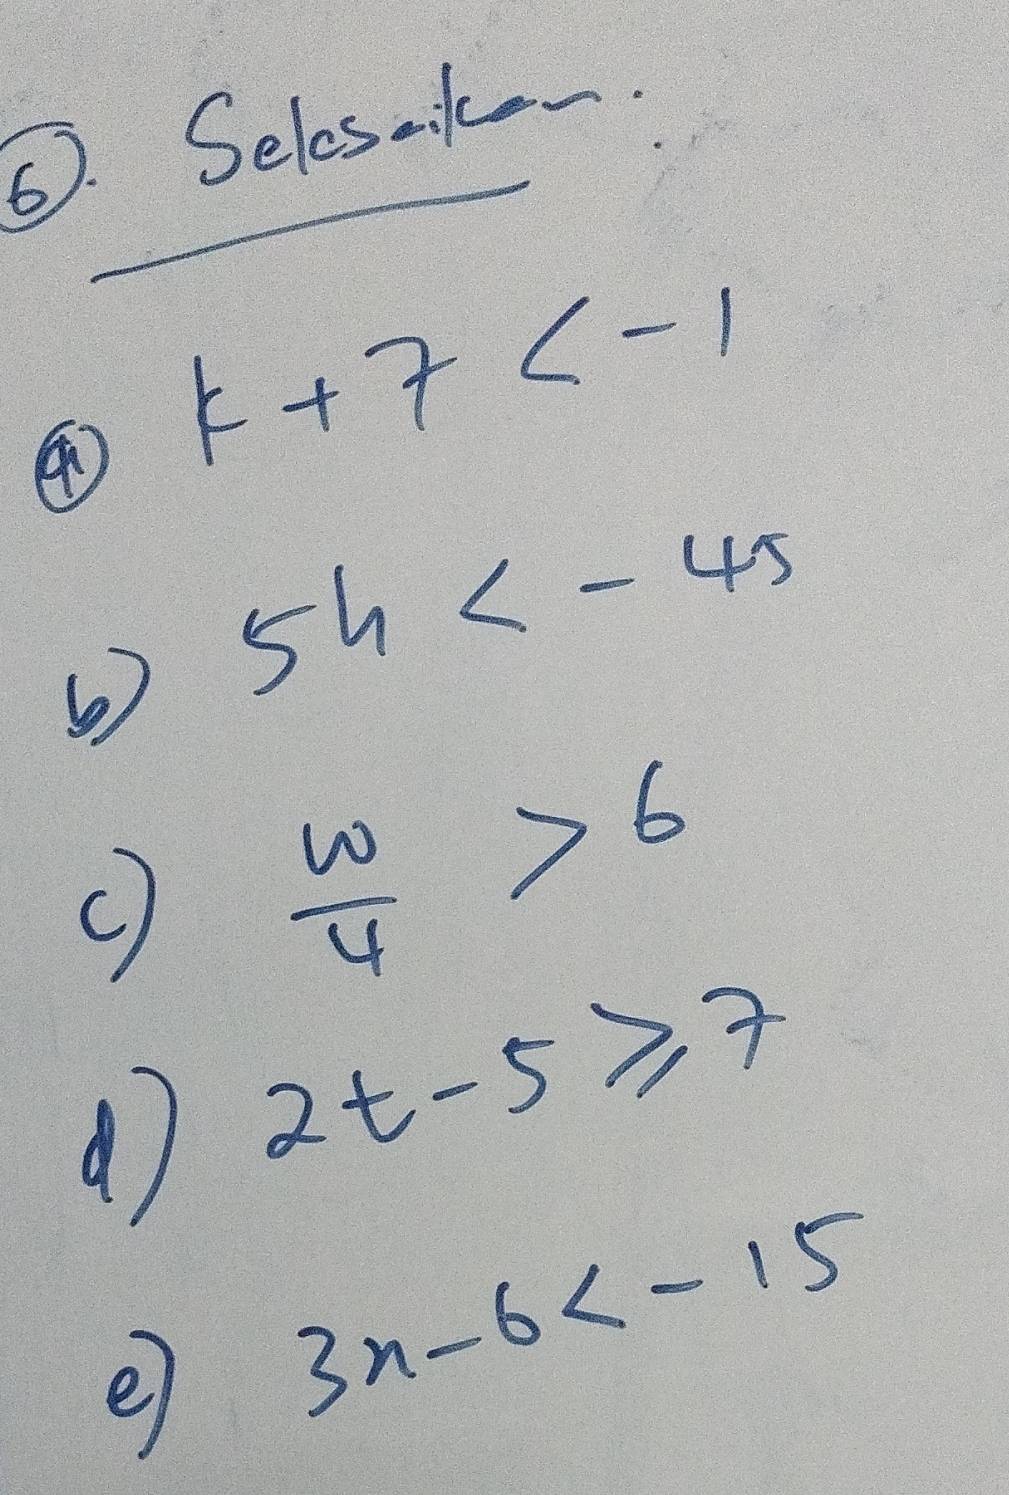 ⑥. Selesaikan.
ⓐ k + 7 < -1
b) 5h < - 45
c) w/4 > 6
d) 2t - 5 ⩾ 7
e) 3n - 6 < - 15